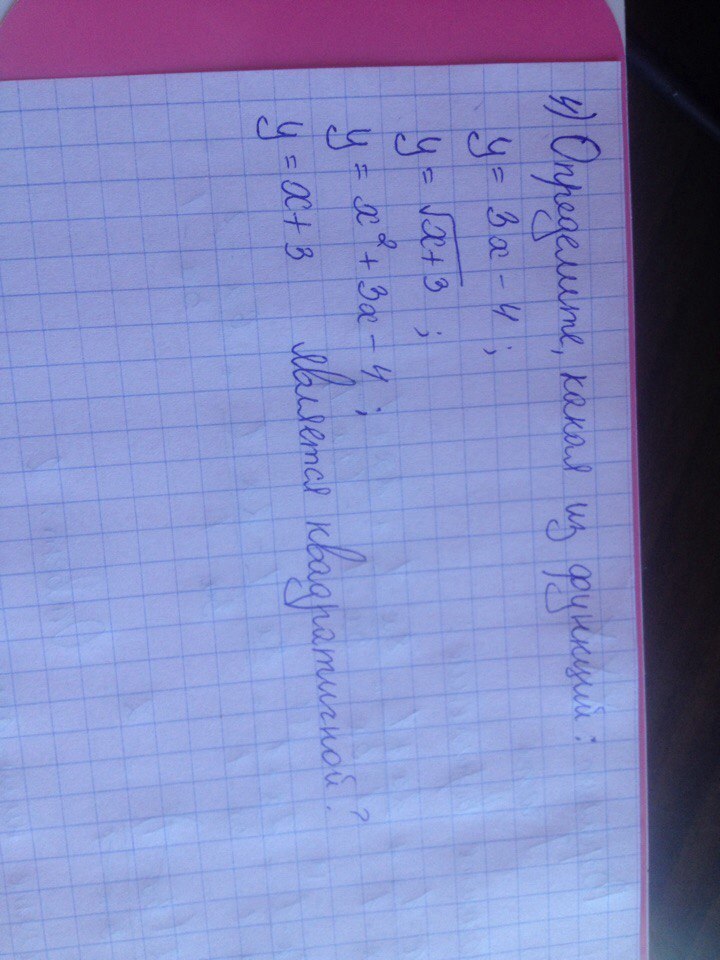 4) Определите, какая из функций:
y = 3x - 4 ;
y = √x+3 ;
y = x² + 3x - 4 ;
y = x + 3 является квадратичной ?